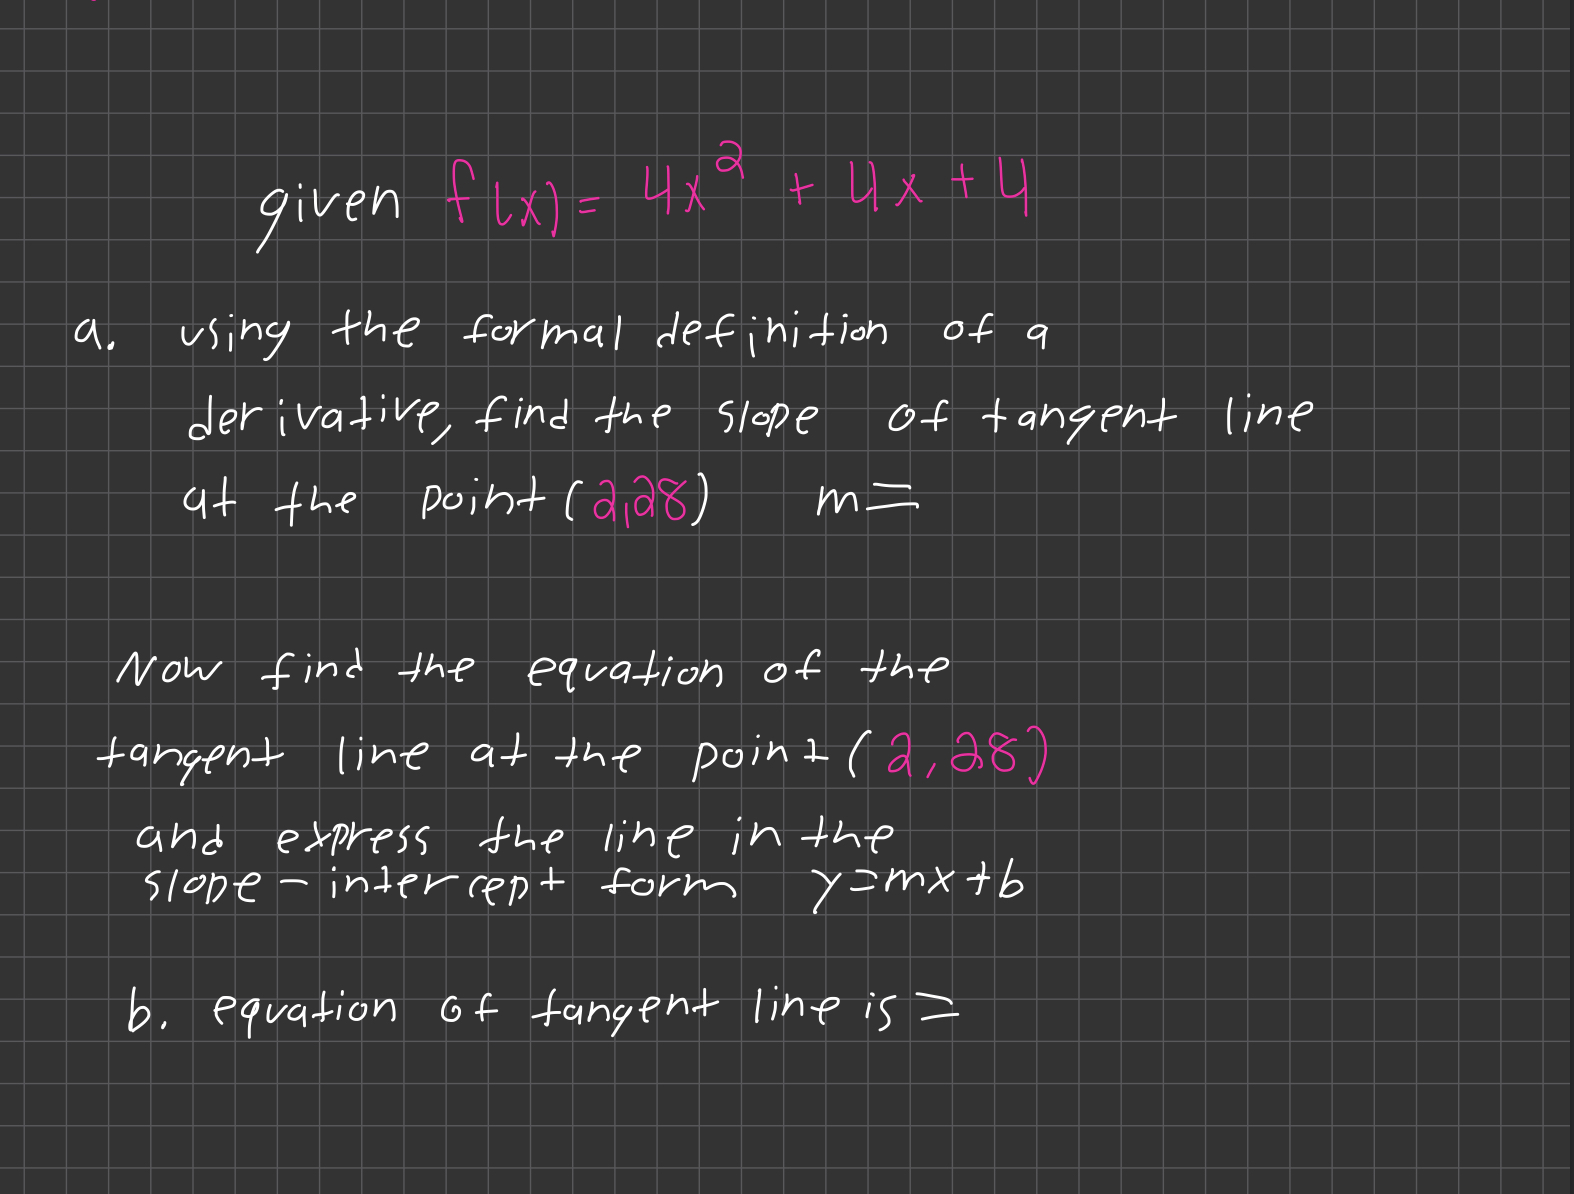 given f(x) = 4x² + 4x + 4
a. using the formal definition of a
derivative, find the slope of tangent line
at the point (2,28) m=
Now find the equation of the
tangent line at the point (2,28)
and express the line in the
slope-intercept form y=mx+b
b. equation of tangent line is =